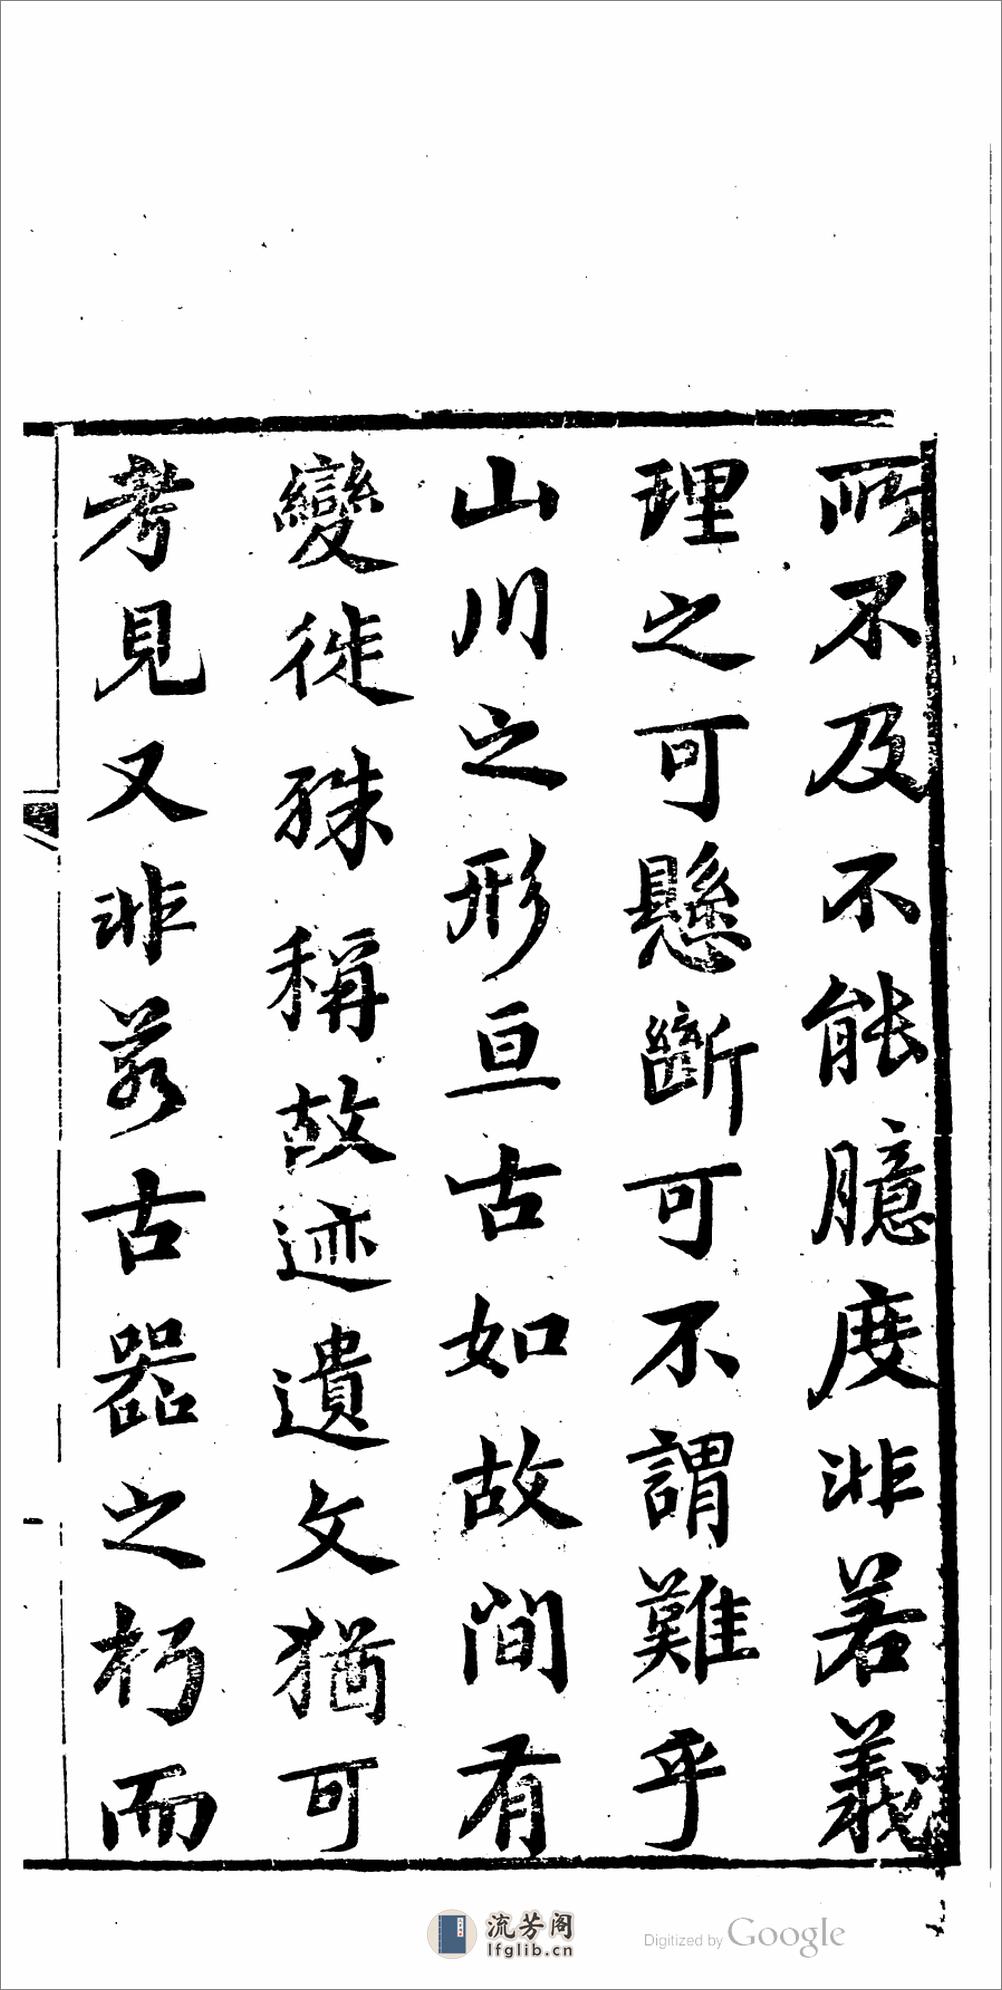 所不及不能臆度非若義
理之可懸斷可不謂難乎
山川之形亘古如故間有
變徙殊稱故迹遺文猶可
考見又非若古器之朽而
流芳阁
lfglib.cn
Digitized by Google